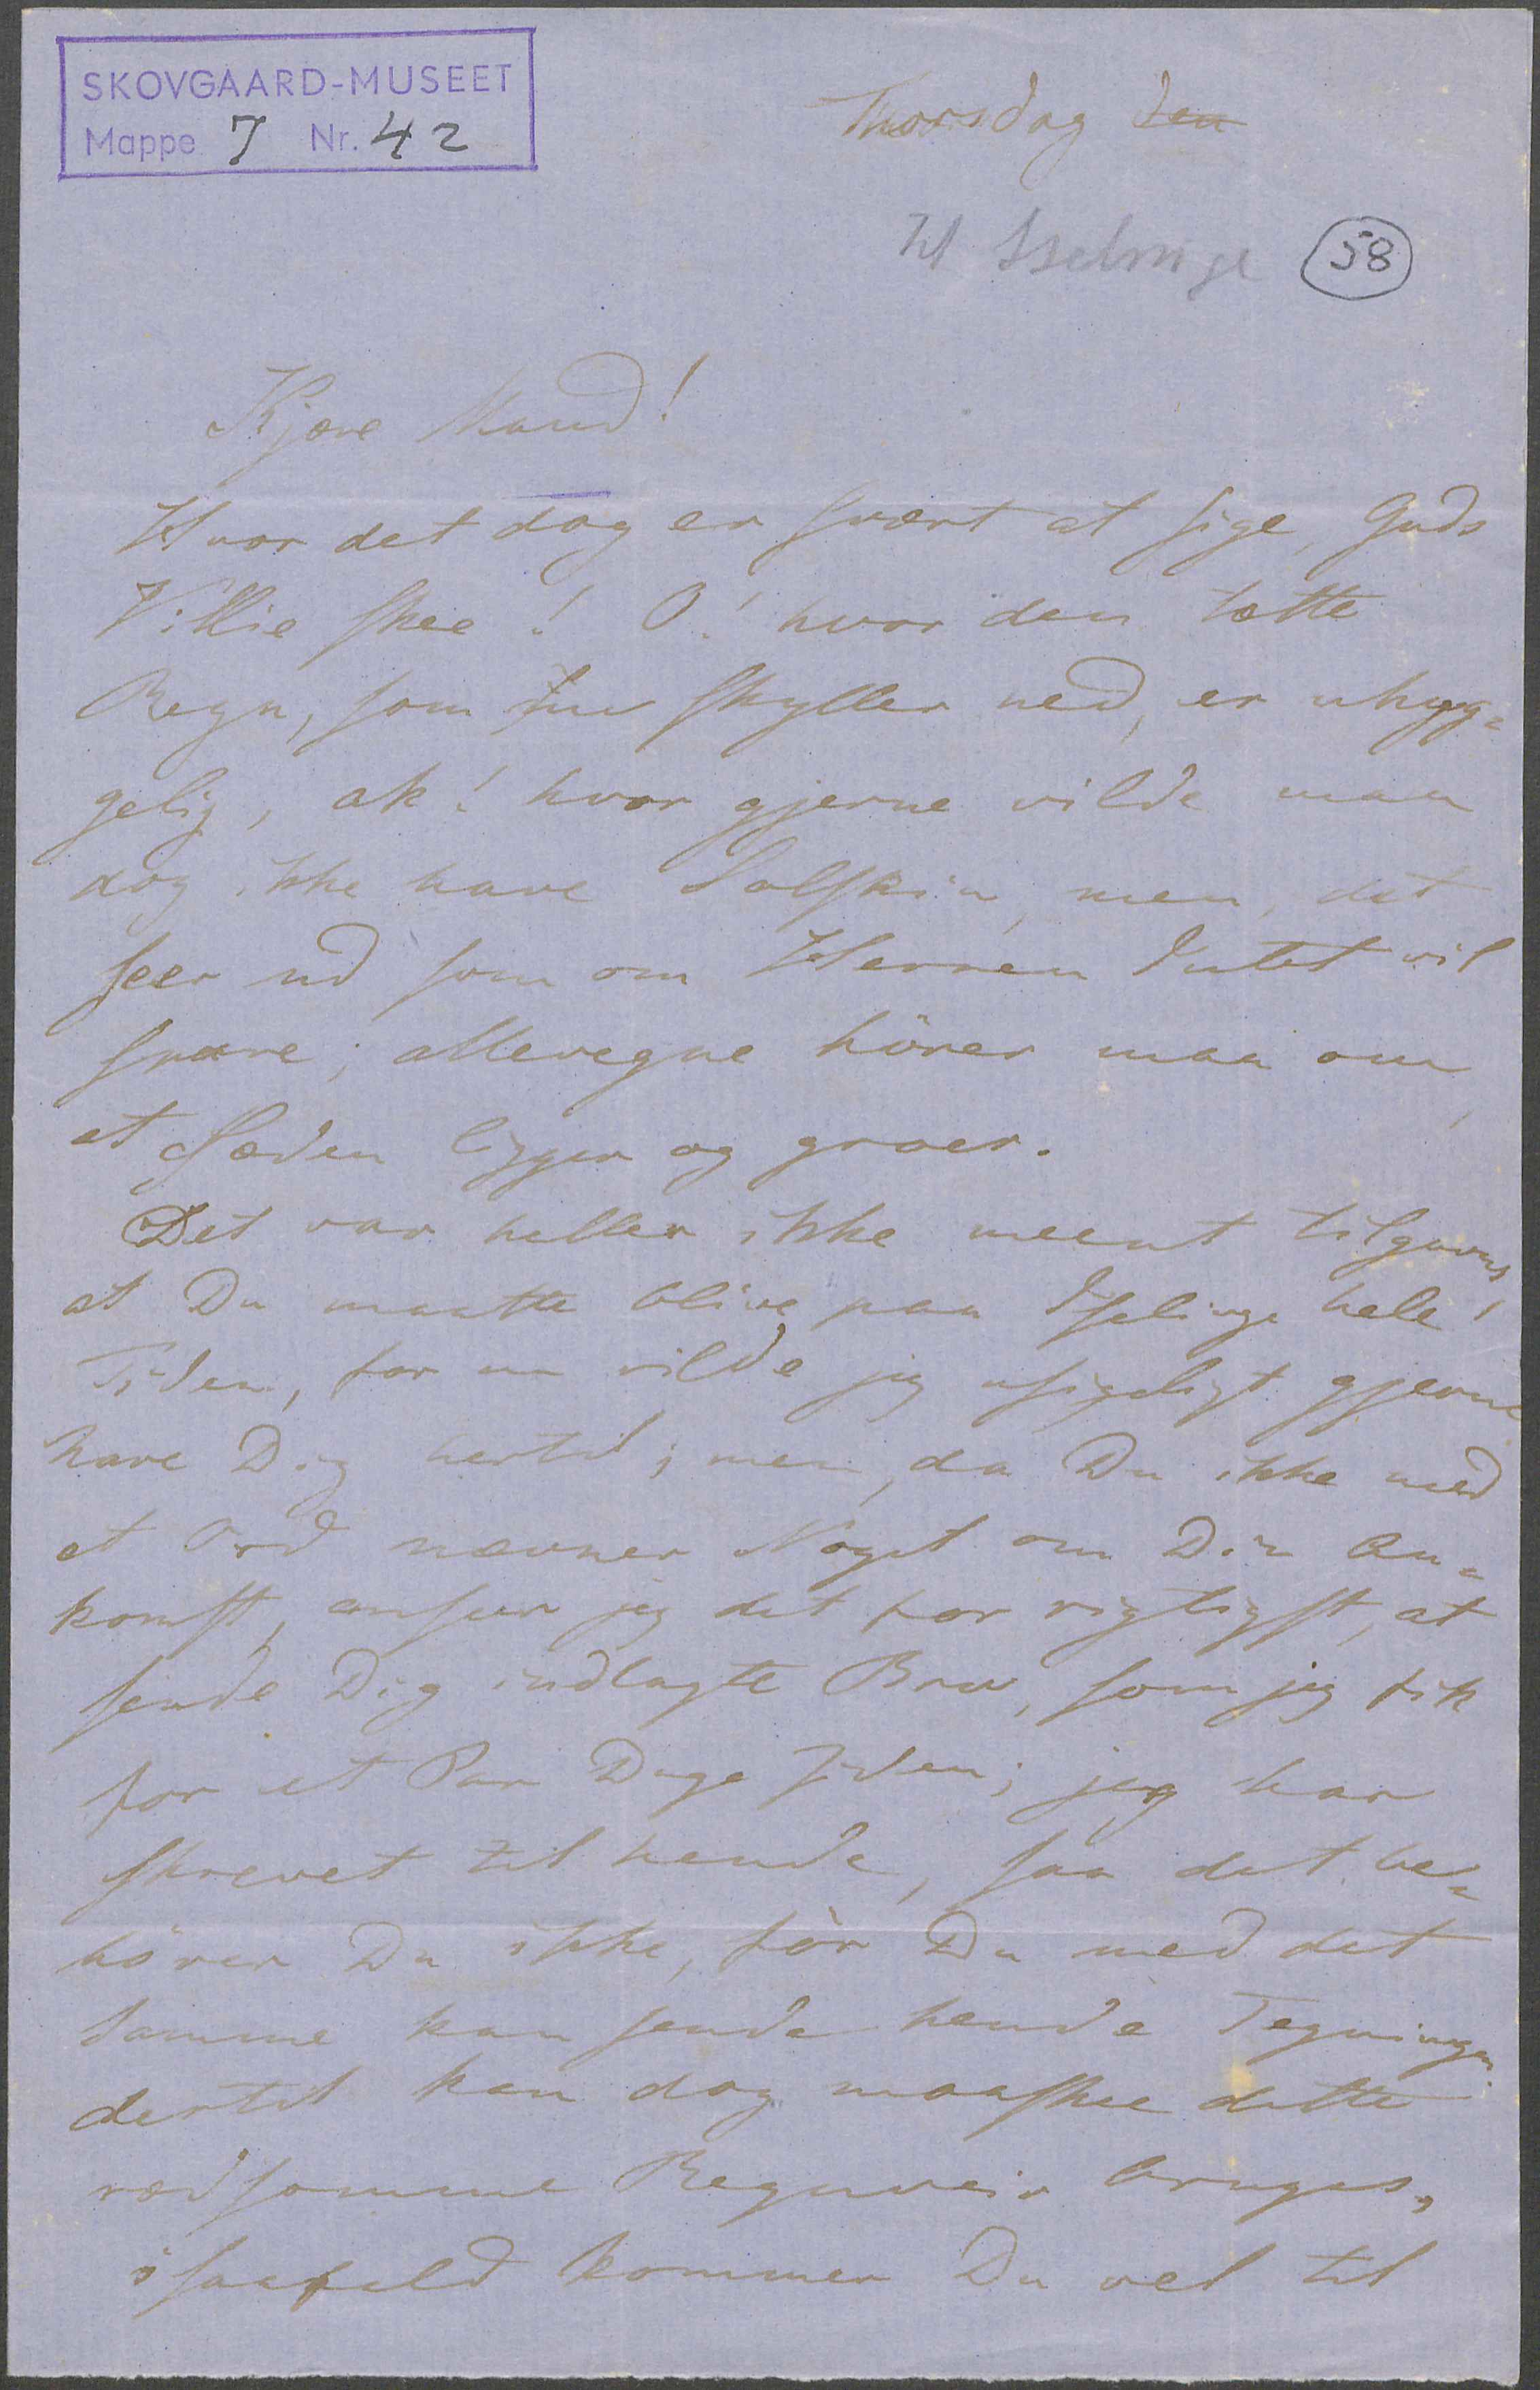 SKOVGAARD-MUSEET
Mappe 7 Nr. 42
Thorsdag den
til Iselinge
58
Kjære Mand!
Hvor det dog er svært at sige, Guds
Villie skee! O! hvor den tætte
Regn, som skyller ned, er uhyg-
gelig, ak! hvor gjerne vilde man
dog ikke have Solskin, men, det
seer ud som om Herren Intet vil
svare; allevegne hörer man om,
at Sæden ligger og groer.
Det var heller ikke meent tilgavns,
at Du maatte blive paa Iselinge hele
Tiden, for nu vilde jeg usigeligt gjerne
have Dig hertil; men, da Du ikke med
et Ord nævner Noget om Din An-
komst, anseer jeg det for rigtigst, at
sende Dig indlagte Brev, som jeg fik
for et Par Dage siden; jeg har
skrevet til hende, saa det be-
höver Du ikke, för Du med det
samme kan sende hende Tegningen.
dertil kan dog maaskee dette
rædsomme Regnveir bruges,
isaafald kommer Du vel til